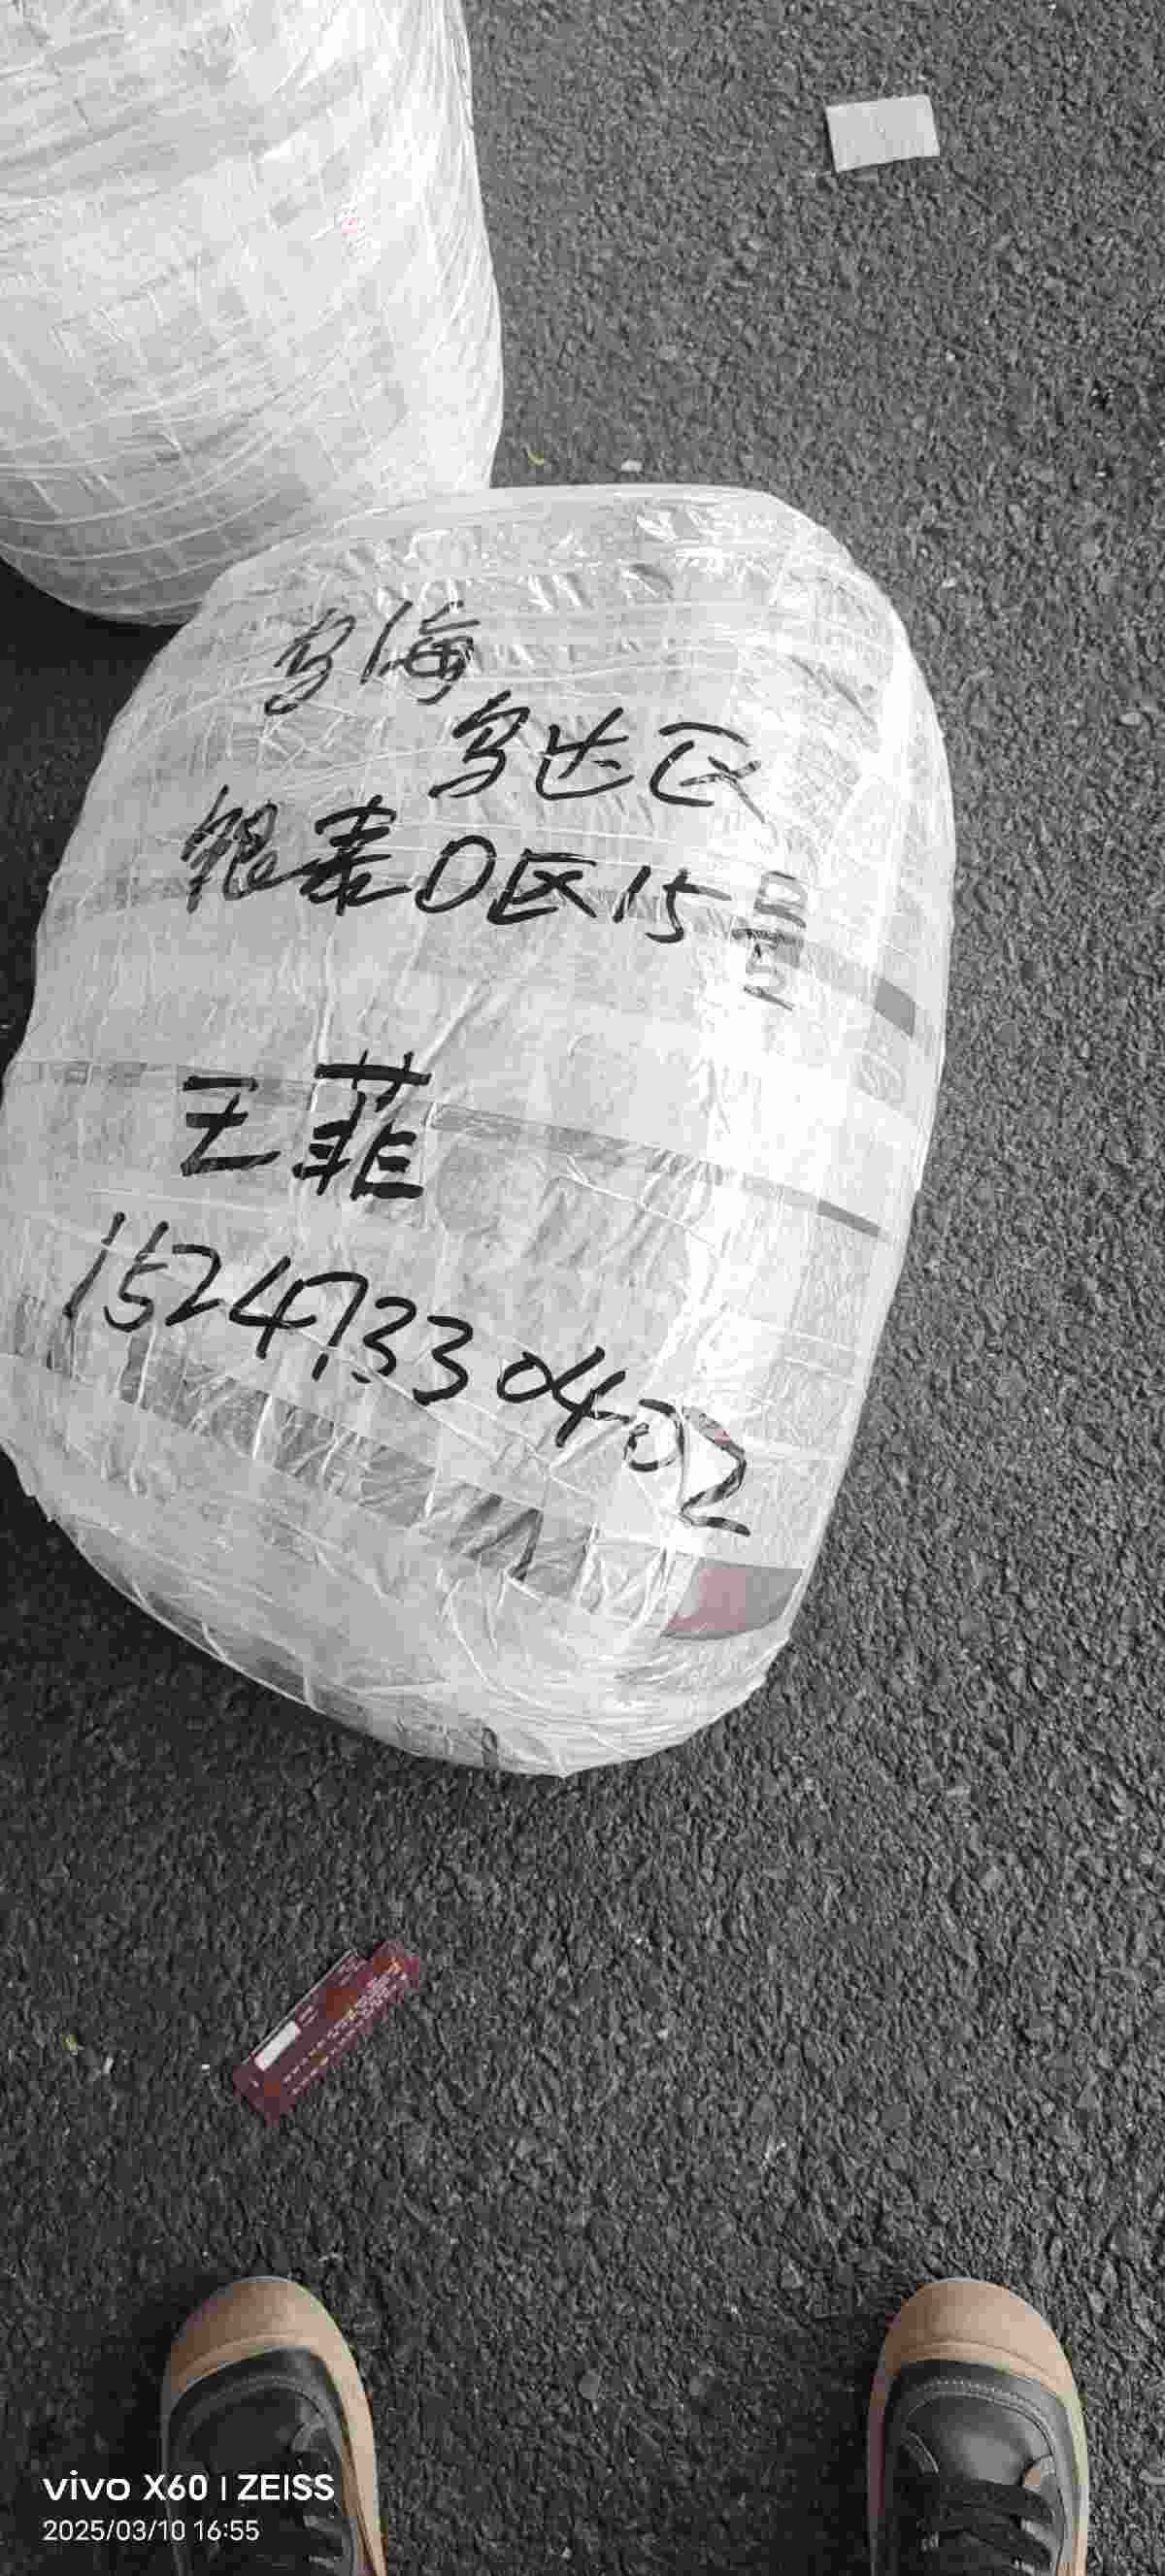 乌海
乌达区
银泰D区15号
王菲
15247330402
vivo X60 | ZEISS
2025/03/10 16:55